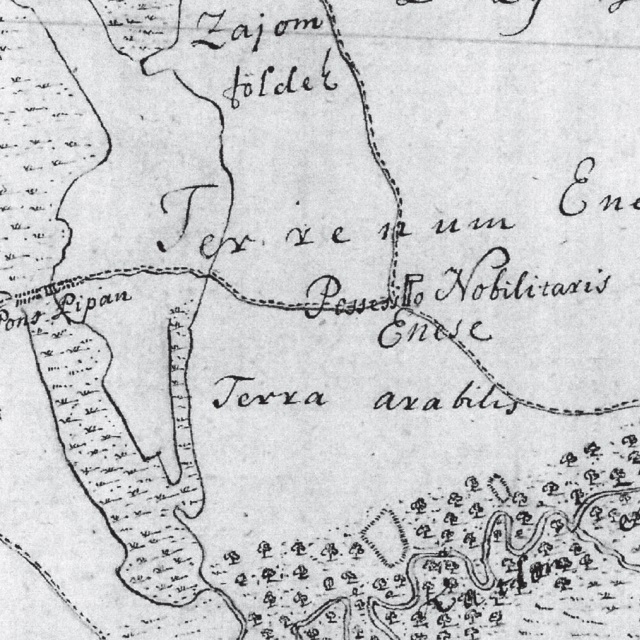 Zajom
földek
Terrenum Ene
Pons Ripan
Possessio Nobilitaris
Enese
Terra arabilis